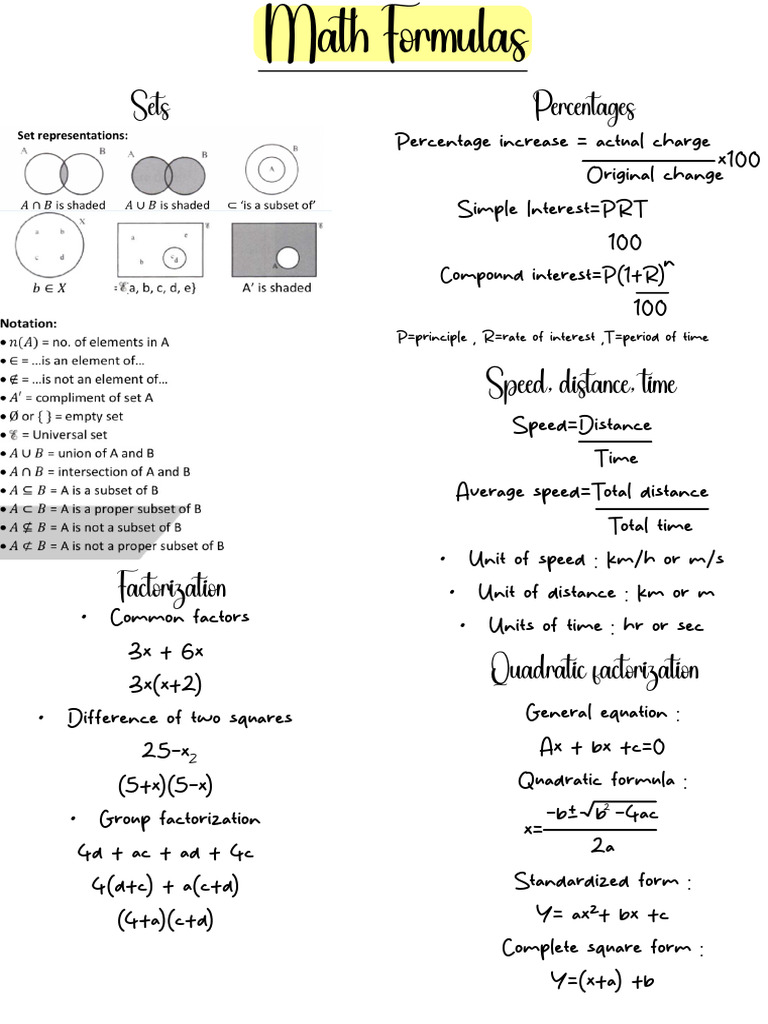 Math Formulas
Sets
Set representations:
A B
A B
B
A
A ∩ B is shaded
A ∪ B is shaded
⊂ 'is a subset of'
X
a b
c d
ℰ
a e
b c d
ℰ
A
b ∈ X
:ℰ,a, b, c, d, e}
A′ is shaded
Notation:
• n(A) = no. of elements in A
• ∈ = …is an element of…
• ∉ = …is not an element of…
• A′ = compliment of set A
• Ø or { } = empty set
• ℰ = Universal set
• A ∪ B = union of A and B
• A ∩ B = intersection of A and B
• A ⊆ B = A is a subset of B
• A ⊂ B = A is a proper subset of B
• A ⊈ B = A is not a subset of B
• A ⊄ B = A is not a proper subset of B
Factorization
• Common factors
3x + 6x
3x(x+2)
• Difference of two squares
25-x₂
(5+x)(5-x)
• Group factorization
4d + ac + ad + 4c
4(d+c) + a(c+d)
(4+a)(c+d)
Percentages
Percentage increase = actual charge
×100
Original change
Simple Interest=PRT
100
Compound interest=P(1+R)ⁿ
100
P=principle , R=rate of interest ,T=period of time
Speed, distance, time
Speed=Distance
Time
Average speed=Total distance
Total time
• Unit of speed : km/h or m/s
• Unit of distance : km or m
• Units of time : hr or sec
Quadratic factorization
General equation :
Ax + bx +c=0
Quadratic formula :
-b±√b² -4ac
x=
2a
Standardized form :
Y= ax²+ bx +c
Complete square form :
Y=(x+a) +b